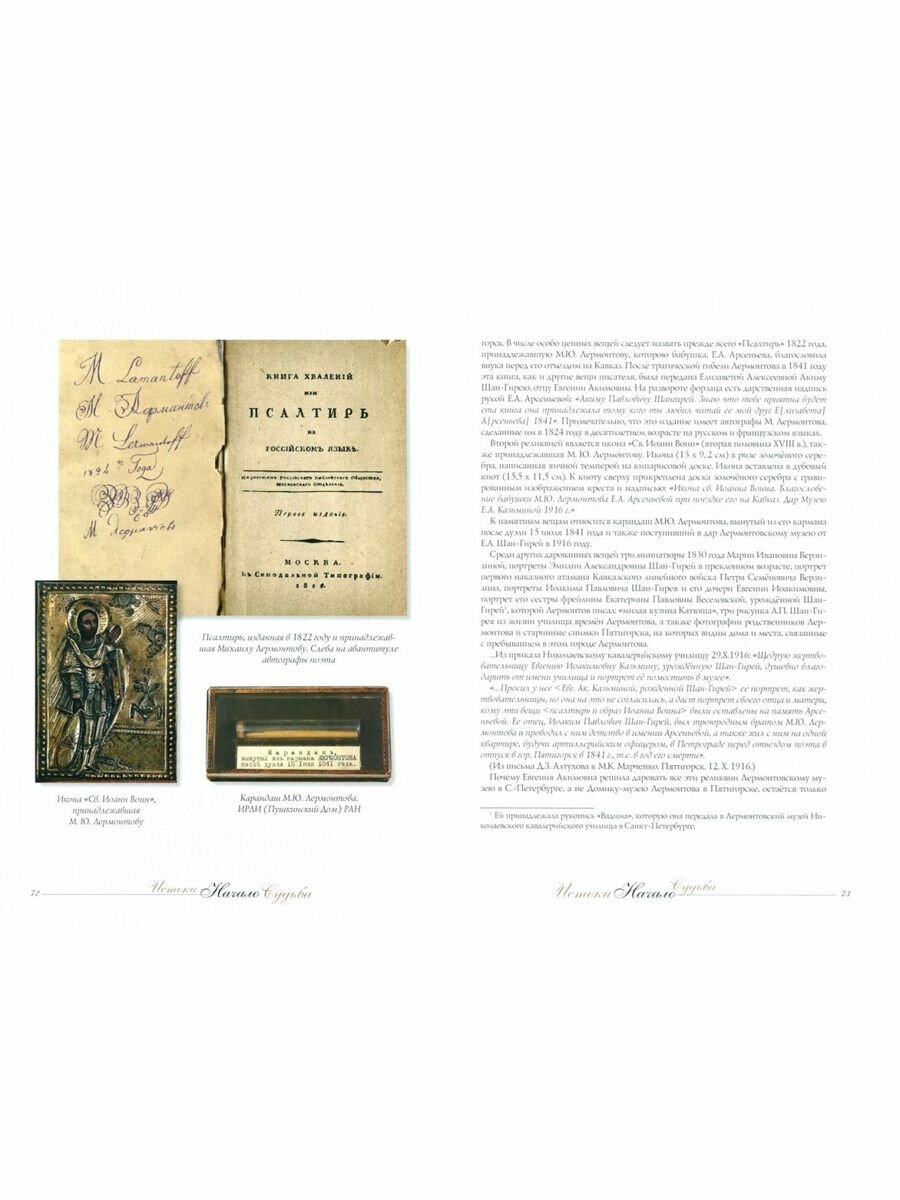 M Lamantoff
М. Лермантовъ
M Lermantoff
1824 года
М Лермантовъ
КНИГА ХВАЛЕНІЙ
ИЛИ
ПСАЛТИРЬ
НА
РОССІЙСКОМЪ ЯЗЫКѢ.
Иждивеніемъ Россійскаго Библейскаго Общества,
Московскаго Отдѣленія.
Первое изданіе.
МОСКВА.
Въ Синодальной Типографіи.
Псалтирь, изданная в 1822 году и принадлежав-
шая Михаилу Лермонтову. Слева на авантитуле
автографы поэта
Карандашъ,
вынутый изъ кармана ЛЕРМОНТОВА
послѣ дуэли 15 Іюля 1841 года.
Икона «Св. Иоанн Воин»,
принадлежавшая
М. Ю. Лермонтову
Карандаш М.Ю. Лермонтова.
ИРЛИ (Пушкинский Дом) РАН
72
Истоки Начало Судьба
горск. В числе особо ценных вещей следует назвать прежде всего «Псалтирь» 1822 года,
принадлежавшую М.Ю. Лермонтову, которою бабушка, Е.А. Арсеньева, благословила
внука перед его отъездом на Кавказ. После трагической гибели Лермонтова в 1841 году
эта книга, как и другие вещи писателя, была передана Елизаветой Алексеевной Акиму
Шан-Гирею, отцу Евгении Акимовны. На развороте форзаца есть дарственная надпись
рукой Е.А. Арсеньевой: «Акиму Павловичу Шангирей. Знаю что тебе приятна будет
ета книга она принадлежала тому кого ты любил читай ее мой друг Е[лизавета]
А[рсеньева] 1841». Примечательно, что это издание имеет автографы М. Лермонтова,
сделанные им в 1824 году в десятилетнем возрасте на русском и французском языках.
Второй реликвией является икона «Св. Иоанн Воин» (вторая половина XVIII в.), так-
же принадлежавшая М. Ю. Лермонтову. Икона (13 х 9,2 см) в ризе золочёного сере-
бра, написанная яичной темперой на кипарисовой доске. Икона вставлена в дубовый
киот (15,5 х 11,5 см). К киоту сверху прикреплена доска золочёного серебра с грави-
рованным изображением креста и надписью: «Икона св. Иоанна Воина. Благослове-
ние бабушки М.Ю. Лермонтова Е.А. Арсеньевой при поездке его на Кавказ. Дар Музею
Е.А. Казьминой 1916 г.»
К памятным вещам относится карандаш М.Ю. Лермонтова, вынутый из его кармана
после дуэли 15 июля 1841 года и также поступивший в дар Лермонтовскому музею от
Е.А. Шан-Гирей в 1916 году.
Среди других дарованных вещей три миниатюры 1830 года Марии Ивановны Верзи-
линой, портреты Эмилии Александровны Шан-Гирей в преклонном возрасте, портрет
первого наказного атамана Кавказского линейного войска Петра Семёновича Верзи-
лина, портреты Иоакима Павловича Шан-Гирея и его дочери Евгении Иоакимовны,
портрет его сестры фрейлины Екатерины Павловны Веселовской, урождённой Шан-
Гирей¹, которой Лермонтов писал: «милая кузина Катюша», три рисунка А.П. Шан-Ги-
рея из жизни училища времён Лермонтова, а также фотографии родственников Лер-
монтова и старинные снимки Пятигорска, на которых видны дома и места, связанные
с пребыванием в этом городе Лермонтова.
...Из приказа Николаевскому кавалерийскому училищу 29.X.1916: «Щедрую жертво-
вательницу Евгению Иоакимовну Казьмину, урождённую Шан-Гирей, душевно благо-
дарить от имени училища и портрет её поместить в музее».
«...Просил у нее <Евг. Ак. Казьминой, рожденной Шан-Гирей> ее портрет, как жер-
твовательницы, но она на это не согласилась, а даст портрет своего отца и матери,
кому эти вещи <псалтырь и образ Иоанна Воина> были оставлены на память Арсе-
ньевой. Ее отец, Иоаким Павлович Шан-Гирей, был троюродным братом М.Ю. Лер-
монтова и проводил с ним детство в имении Арсеньевой, а также жил с ним на одной
квартире, будучи артиллерийским офицером, в Петрограде перед отъездом поэта в
отпуск в гор. Пятигорск в 1841 г., т.е. в год его смерти».
(Из письма Д.З. Алтухова к М.К. Марченко. Пятигорск. 12. X. 1916.)
Почему Евгения Акимовна решила даровать все эти реликвии Лермонтовскому му-
зею в С.-Петербурге, а не Домику-музею Лермонтова в Пятигорске, остаётся только
¹ Ей принадлежала рукопись «Вадима», которую она передала в Лермонтовский музей Ни-
колаевского кавалерийского училища в Санкт-Петербурге.
Истоки Начало Судьба
73